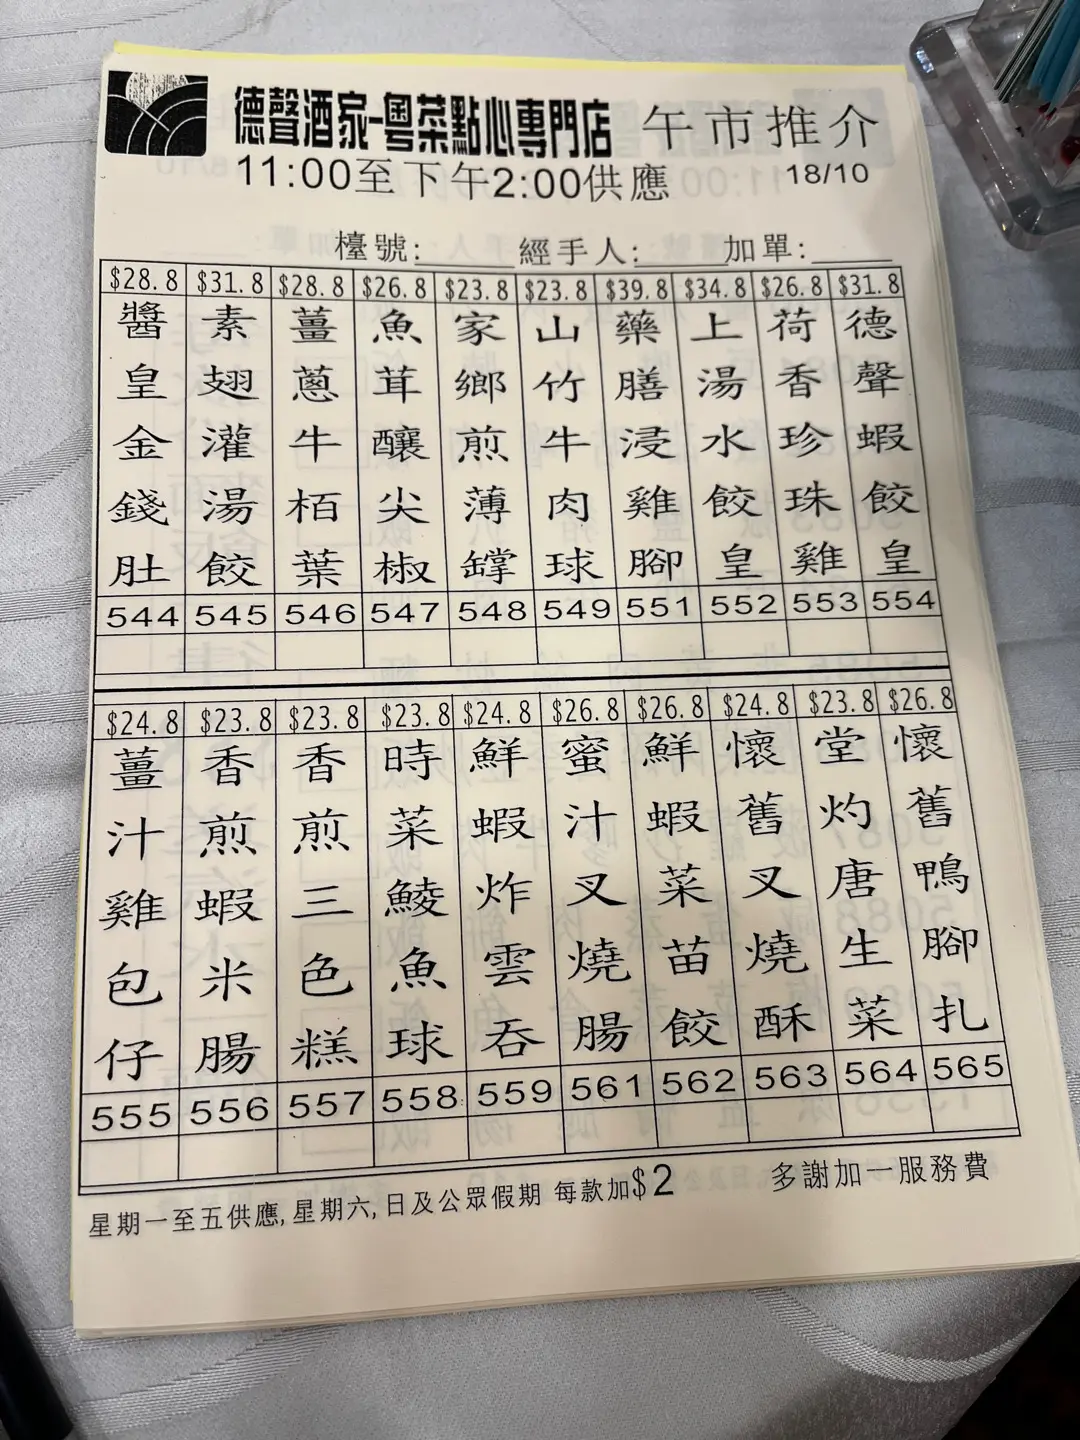 德聲酒家-粵菜點心專門店
午市推介
11:00至下午2:00供應
18/10
檯號:
經手人:
加單:
$28.8 $31.8 $28.8 $26.8 $23.8 $23.8 $39.8 $34.8 $26.8 $31.8
醬皇金錢肚
素翅灌湯餃
薑蔥牛栢葉
魚茸釀尖椒
家鄉煎薄罉
山竹牛肉球
藥膳浸雞腳
上湯水餃皇
荷香珍珠雞
德聲蝦餃皇
544 545 546 547 548 549 551 552 553 554
$24.8 $23.8 $23.8 $23.8 $24.8 $26.8 $26.8 $24.8 $23.8 $26.8
薑汁雞包仔
香煎蝦米腸
香煎三色糕
時菜鯪魚球
鮮蝦炸雲吞
蜜汁叉燒腸
鮮蝦菜苗餃
懷舊叉燒酥
堂灼唐生菜
懷舊鴨腳扎
555 556 557 558 559 561 562 563 564 565
星期一至五供應,星期六,日及公眾假期 每款加$2
多謝加一服務費